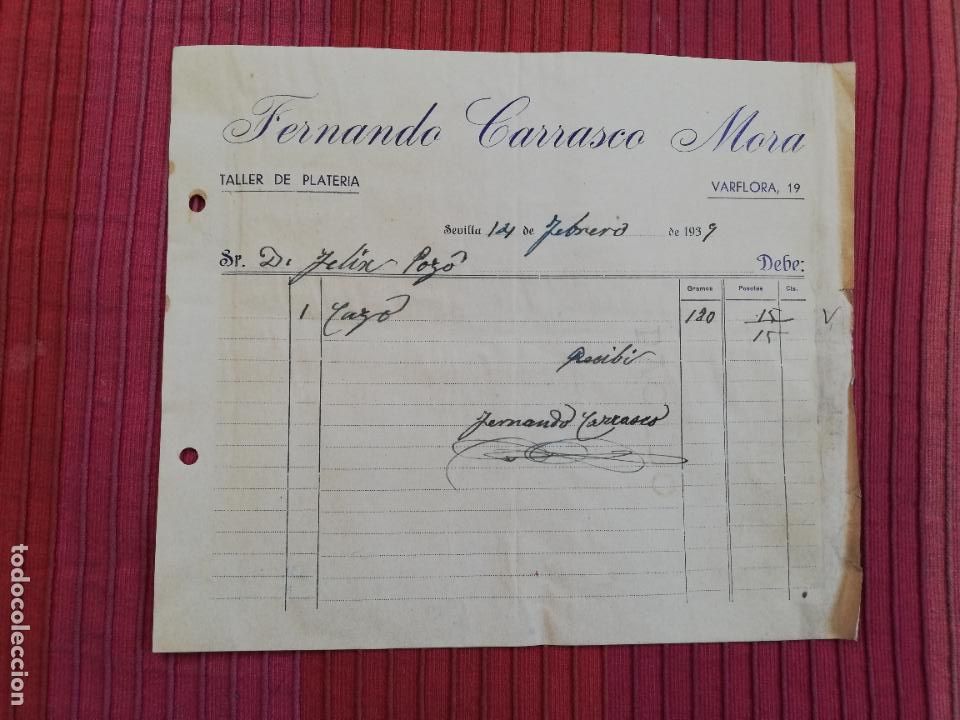 Fernando Carrasco Mora
TALLER DE PLATERIA
VARFLORA, 19
Sevilla 14 de Febrero de 1939
Sr. D. Felix Pozo Debe:
Gramos Pesetas Cts.
1 Cazo 120 15 V
15
Recibi
Fernando Carrasco
todocoleccion